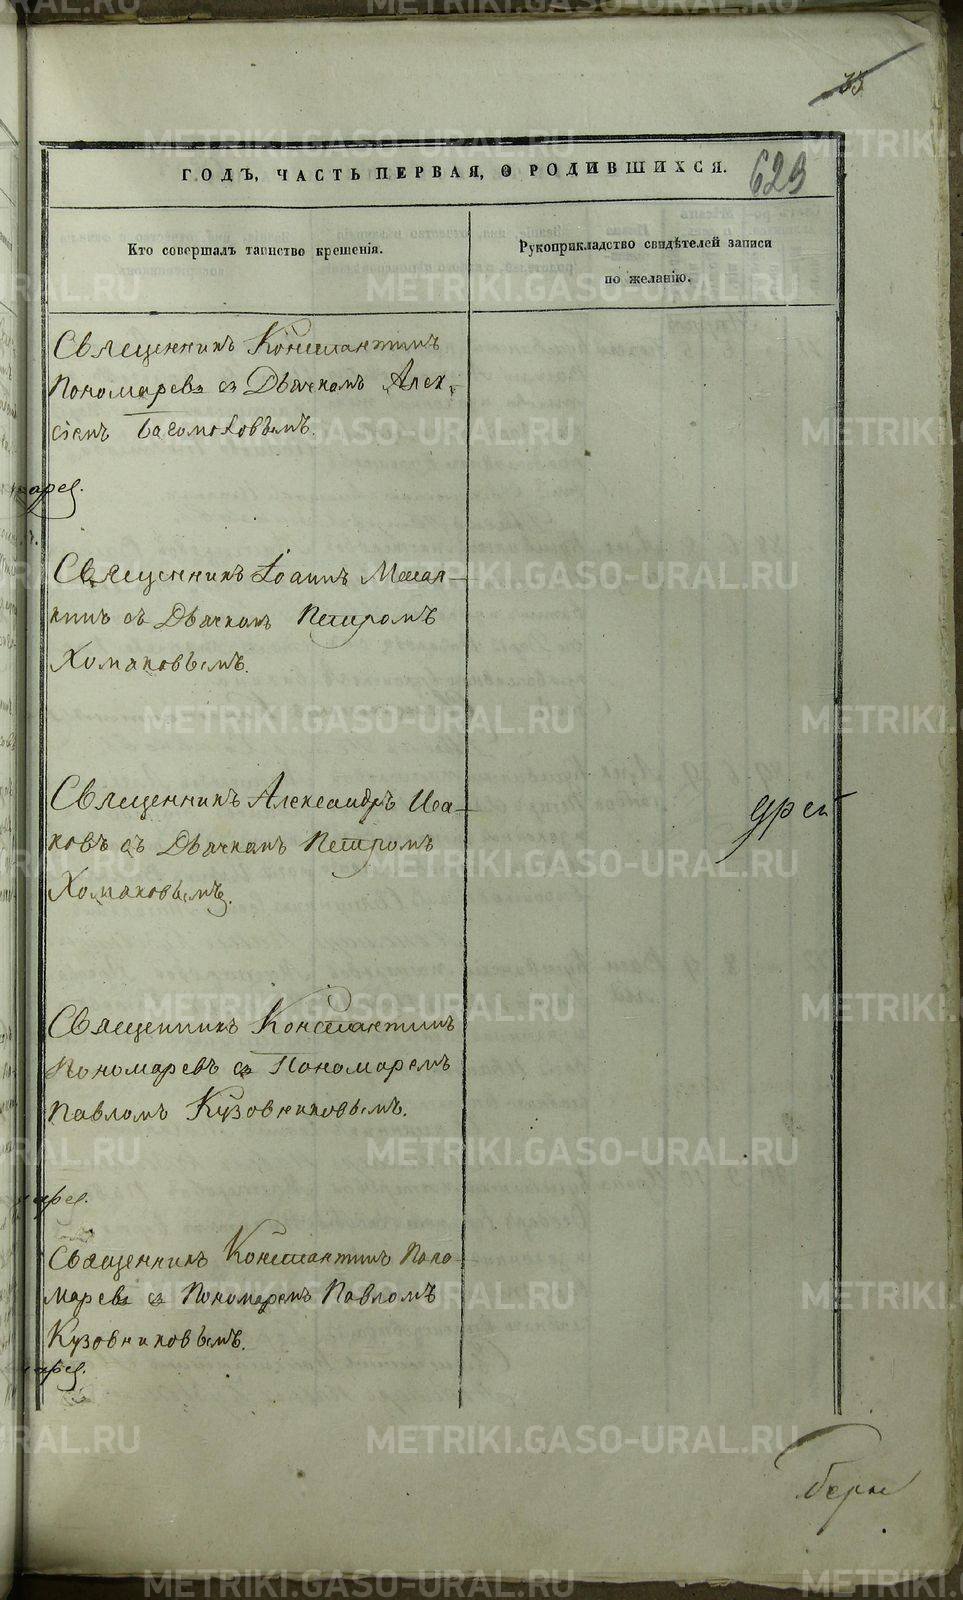 33
ГОДЪ, ЧАСТЬ ПЕРВАЯ, О РОДИВШИХСЯ.
629
Кто совершалъ таинство крещенія.
Рукоприкладство свидѣтелей записи
по желанію.
Священникъ Константинъ
Пономаревъ съ Дьячкомъ Алек-
сіемъ Богомоловымъ.
Священникъ Іоаннъ
съ Дьячкомъ Петромъ
Хомяковымъ.
Священникъ Александръ Иса-
ковъ съ Дьячкомъ Петромъ
Хомяковымъ.
Священникъ Константинъ
Пономаревъ съ Пономаремъ
Павломъ Кузовниковымъ.
Священникъ Константинъ Поно-
маревъ съ Пономаремъ Павломъ
Кузовниковымъ.
METRIKI.GASO-URAL.RU